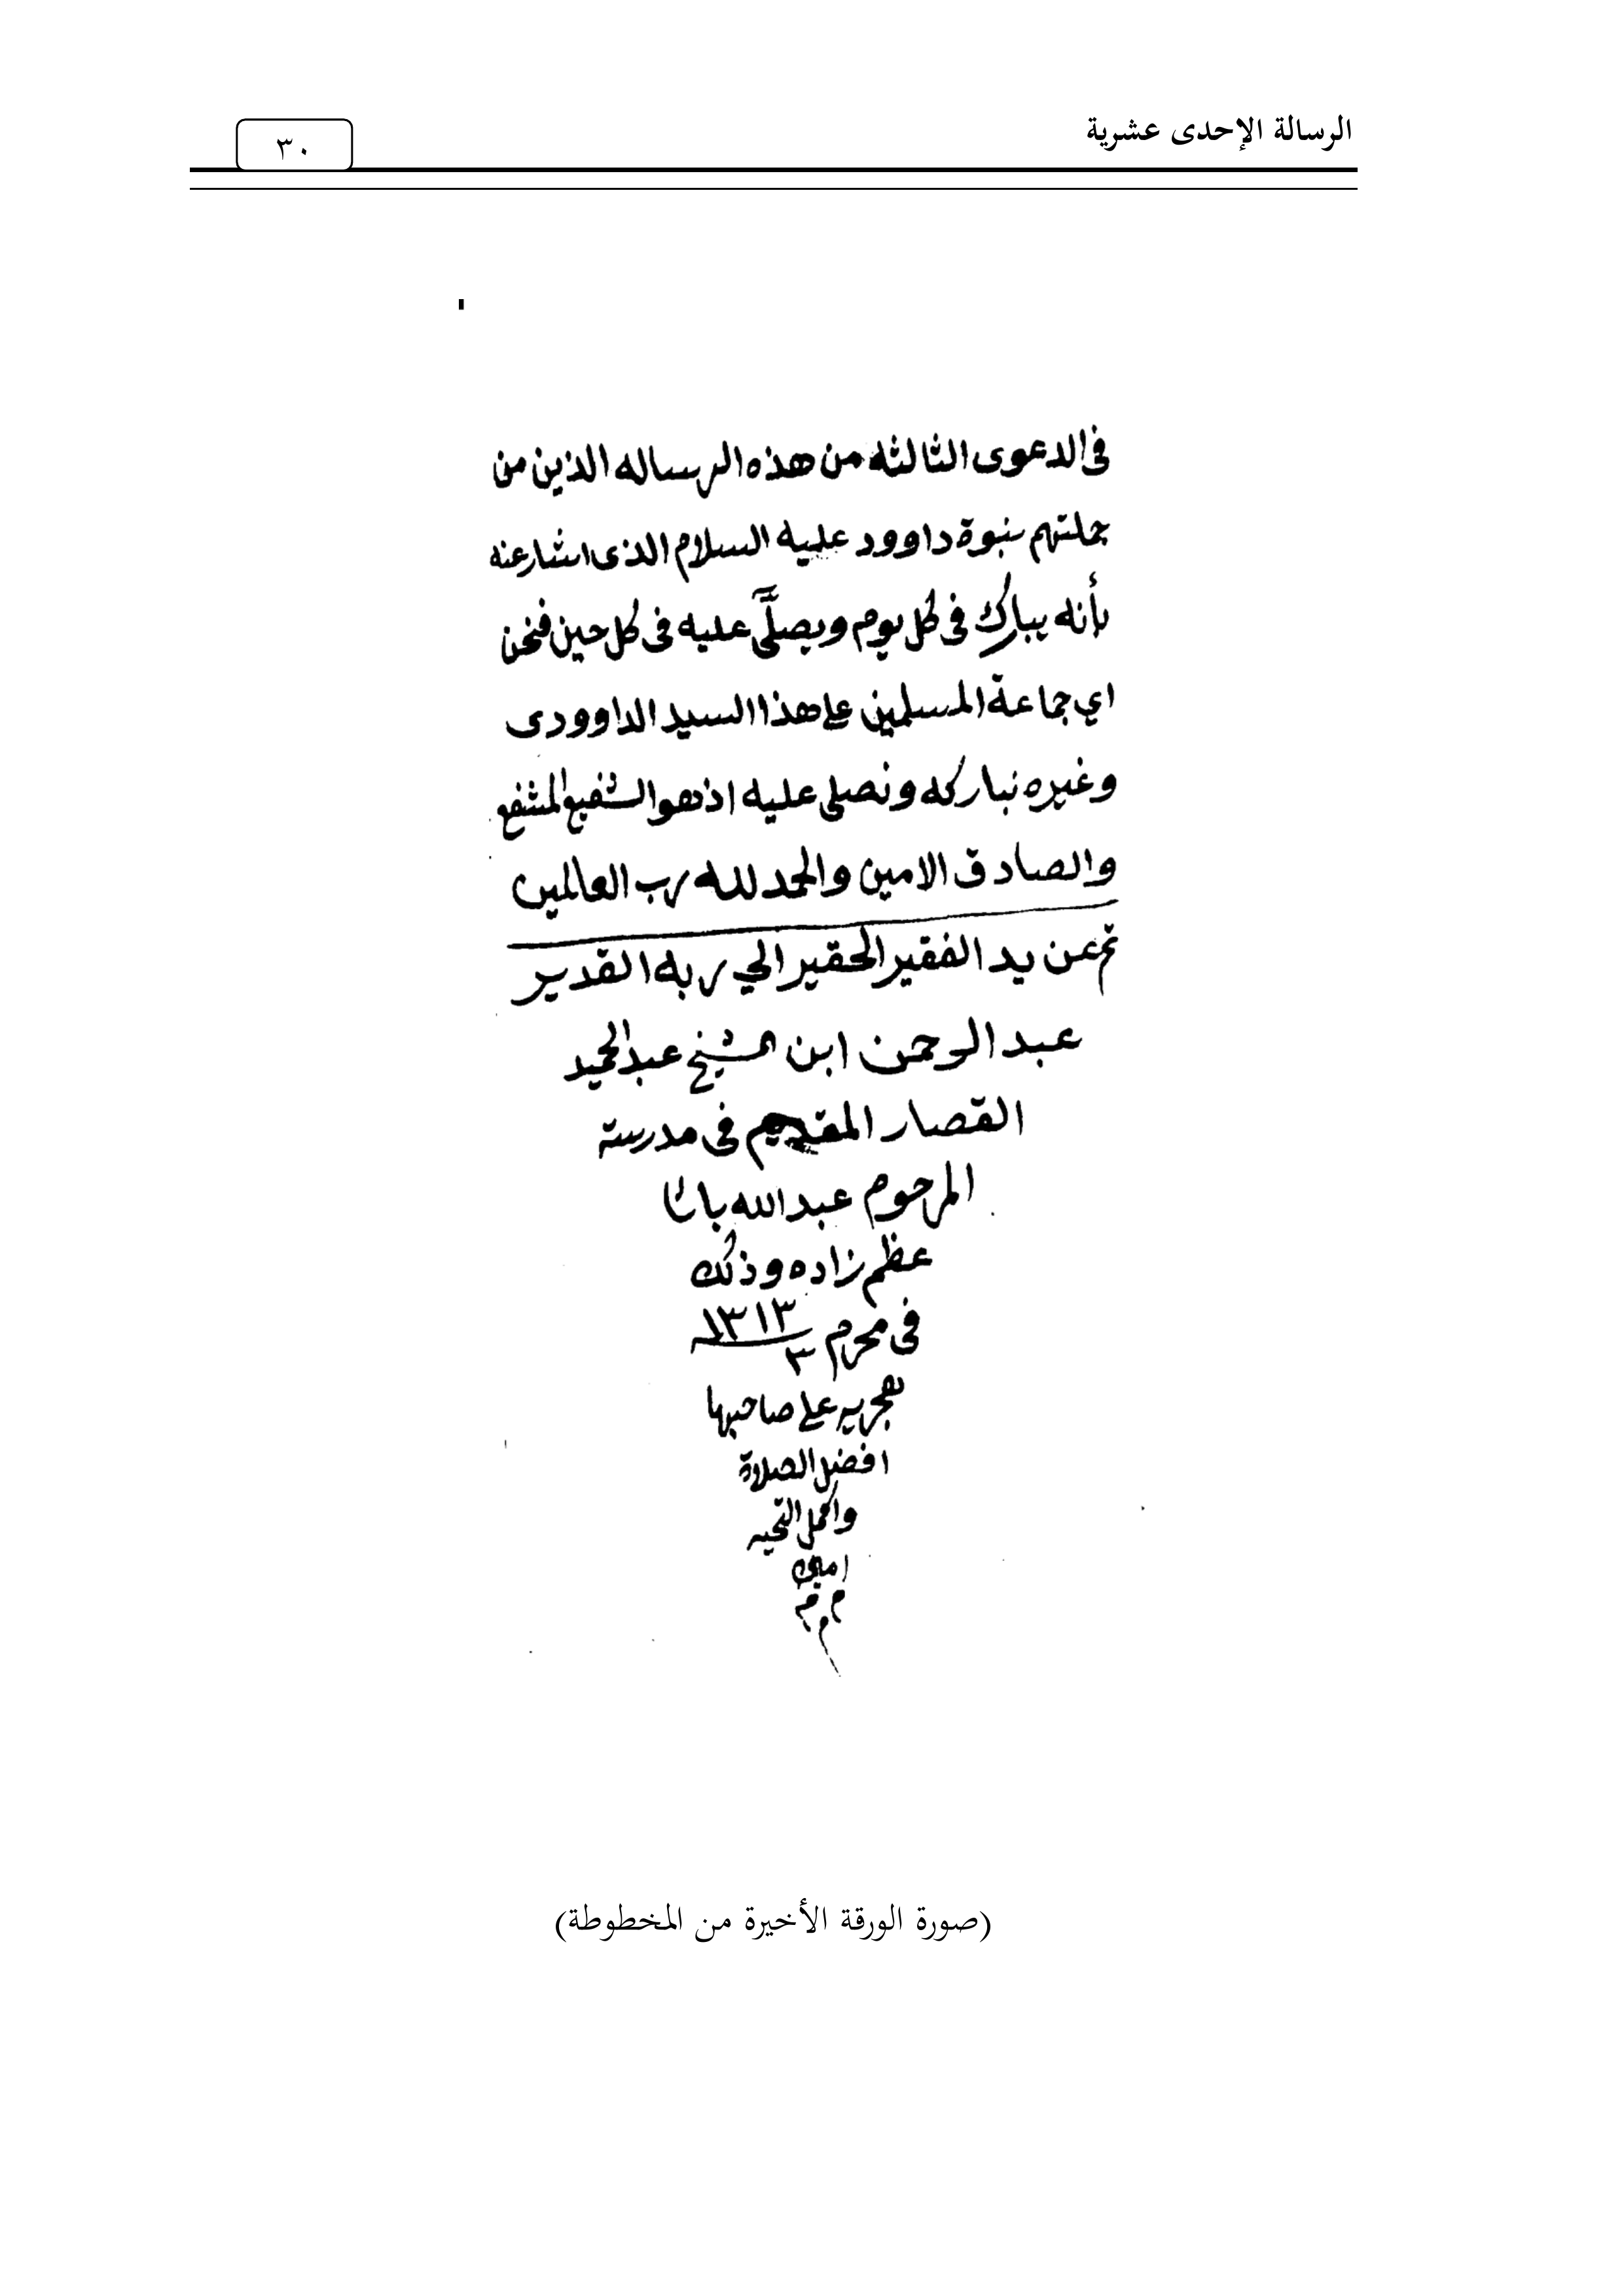 الرسالة الإحدى عشرية
٣٠
فى الدعوى الثالثه من هذه الرساله الذين من
جملتهم بنبوة داوود عليه السلام الذى اشار عنه
بأنه يبارك فى كل يوم ويصلَّى عليه فى كل حين فنحن
اي جماعة المسلمين على هذا السيد الداوودى
وغيره نباركه ونصلى عليه اذ هو الشفيع المشفع
والصادق الامين والحمد لله رب العالمين
تم عن يد الفقير الحقير الي ربه القدير
عبد الرحمن ابن الشيخ عبد الحميد
القصار المقيم فى مدرسة
المرحوم عبد الله باشا
عظم زاده وذلك
فى محرم ٣ ١٣١٣
هجريه على صاحبها
افضل الصلاة
واكمل التحيه
امين
م م م
(صورة الورقة الأخيرة من المخطوطة)